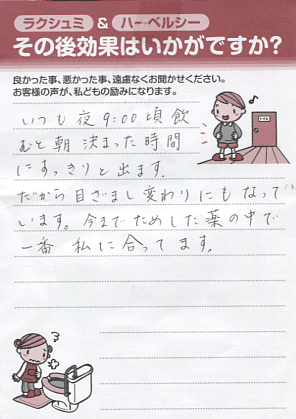 ラクシュミ & ハーベルシー
その後効果はいかがですか?
良かった事、悪かった事、遠慮なくお聞かせください。
お客様の声が、私どもの励みになります。
いつも夜9:00頃飲
むと朝決まった時間
にすっきりと出ます。
だから目ざまし変わりにもなって
います。今までためした薬の中で
一番私に合ってます。